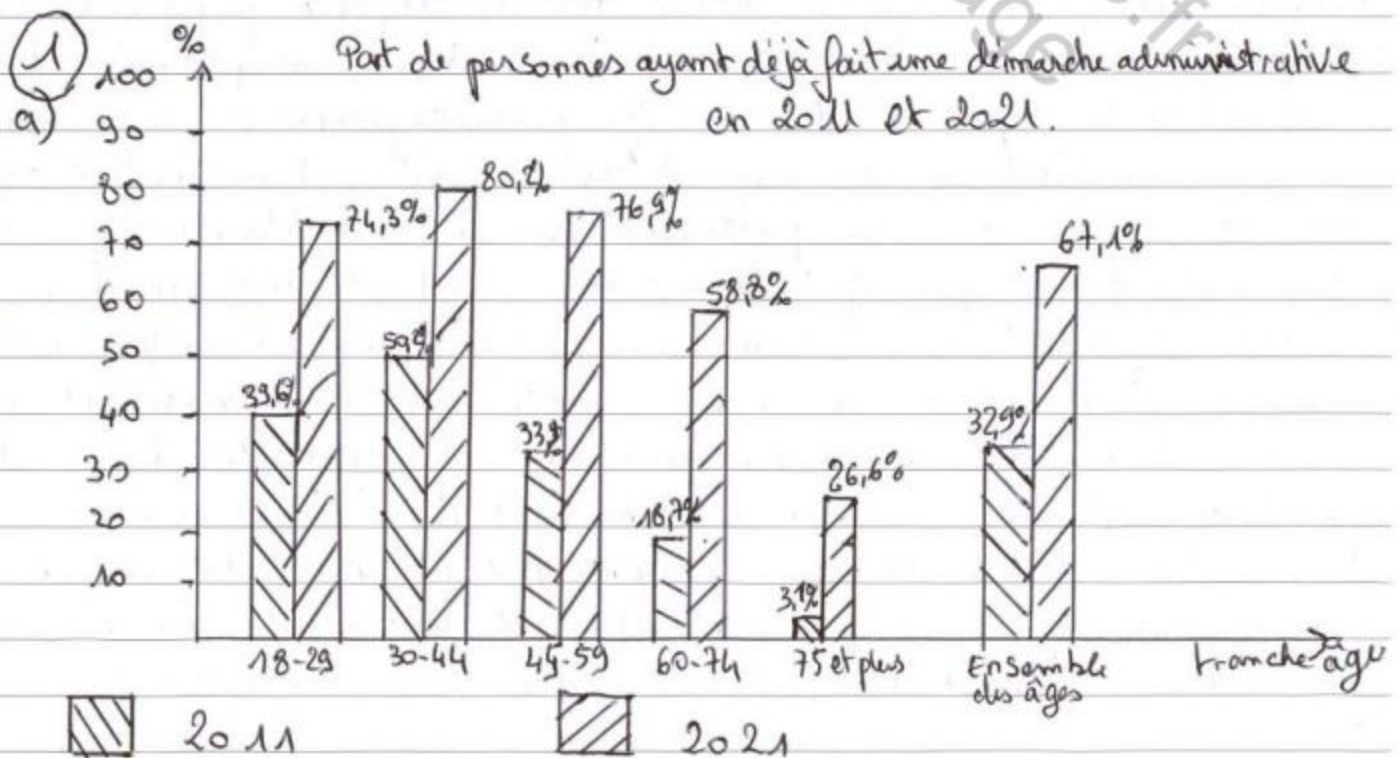 1
a)
%
Part de personnes ayant déjà fait une démarche administrative
en 2011 et 2021.
100
90
80
70
60
50
40
30
20
10
39,6%
74,3%
80,2%
33,9%
76,9%
18,7%
58,8%
3,1%
26,6%
32,9%
67,1%
18-29
30-44
45-59
60-74
75 et plus
Ensemble
des âges
tranche âge
2011
2021